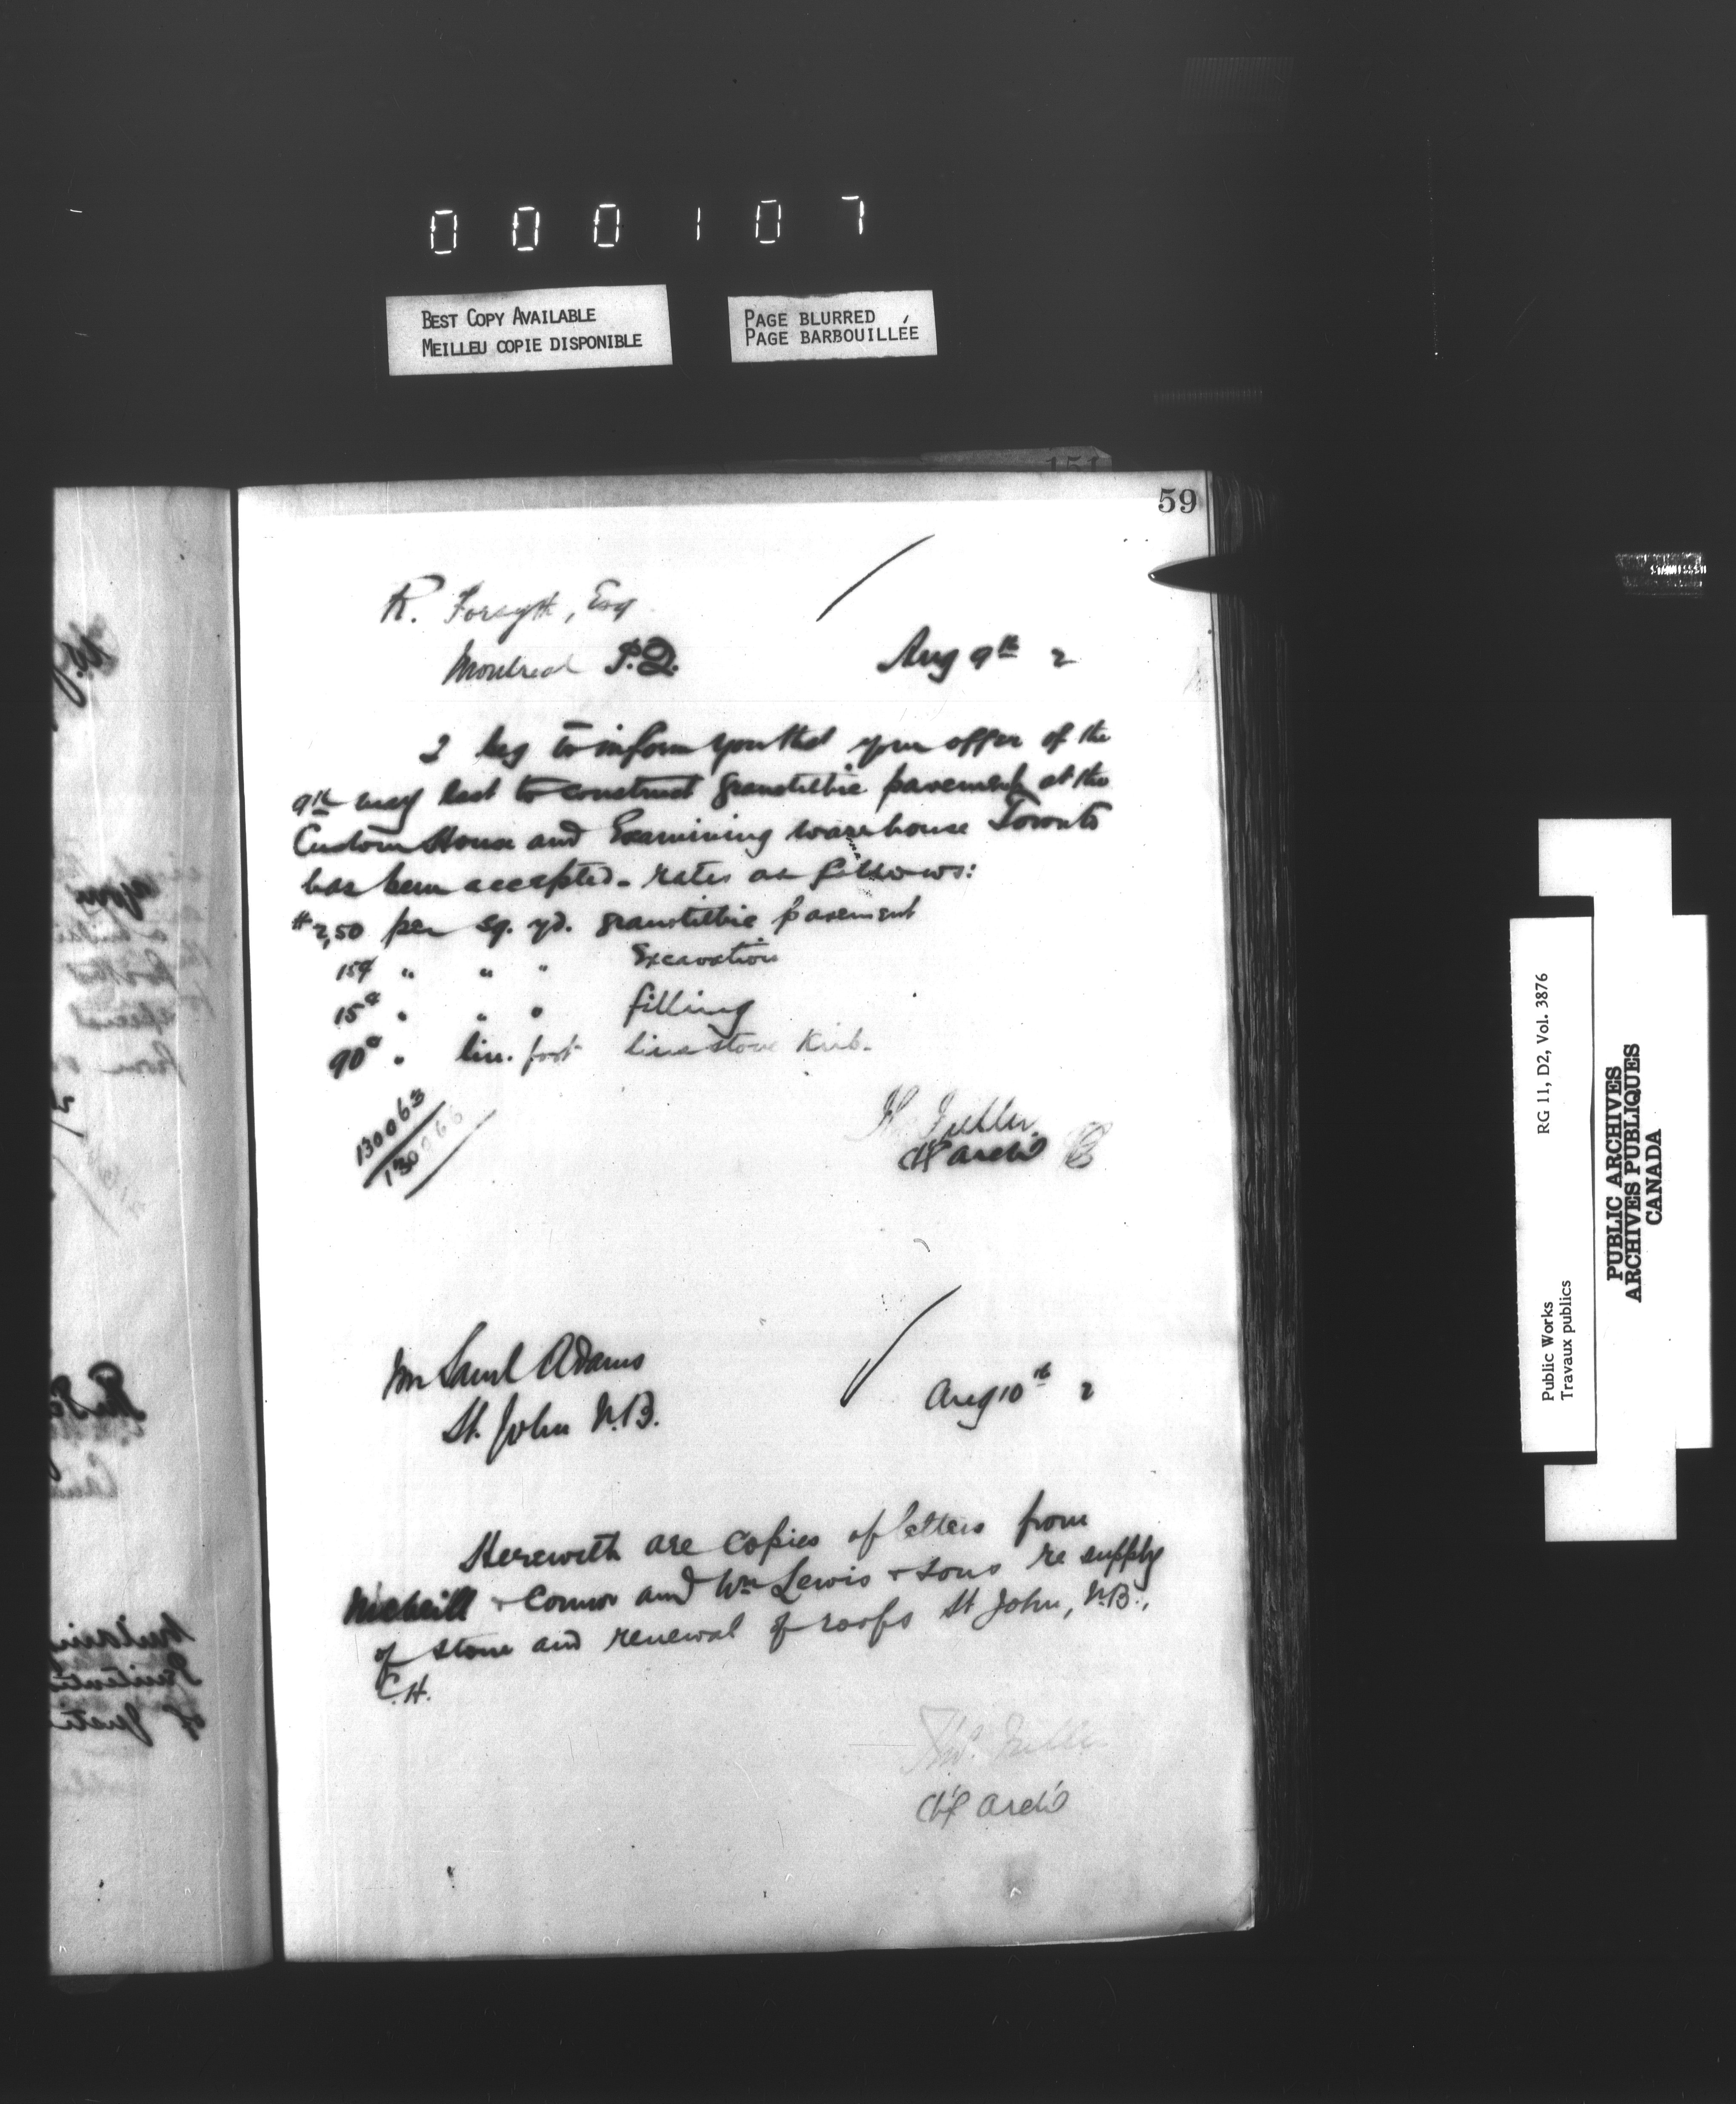 000107
BEST COPY AVAILABLE
MEILLEU COPIE DISPONIBLE
PAGE BLURRED
PAGE BARBOUILLÉE
151
59
R. Forsyth, Esq
Montreal P.Q.
Aug 9th 2
I beg to inform you that your offer of the
9th May last to construct granolithic pavement at the
Custom House and Examining warehouse Toronto
has been accepted - rates as follows:
$2,50 per sq. yd. granolithic pavement
15¢ " " " Excavation
15¢ " " " filling
90¢ " lin. foot limestone Kirb.
130063
130066
Fuller
Chf Archt
Mr Saml Adams
St. John N.B.
Aug 10th 2
Herewith are copies of letters from
McNeill & Connor and Wm Lewis & Sons re supply
of stone and renewal of roofs St John, N.B.,
C.H.
Thos. Fuller
Chf Archt
RG 11, D2, Vol. 3876
Public Works
Travaux publics
PUBLIC ARCHIVES
ARCHIVES PUBLIQUES
CANADA